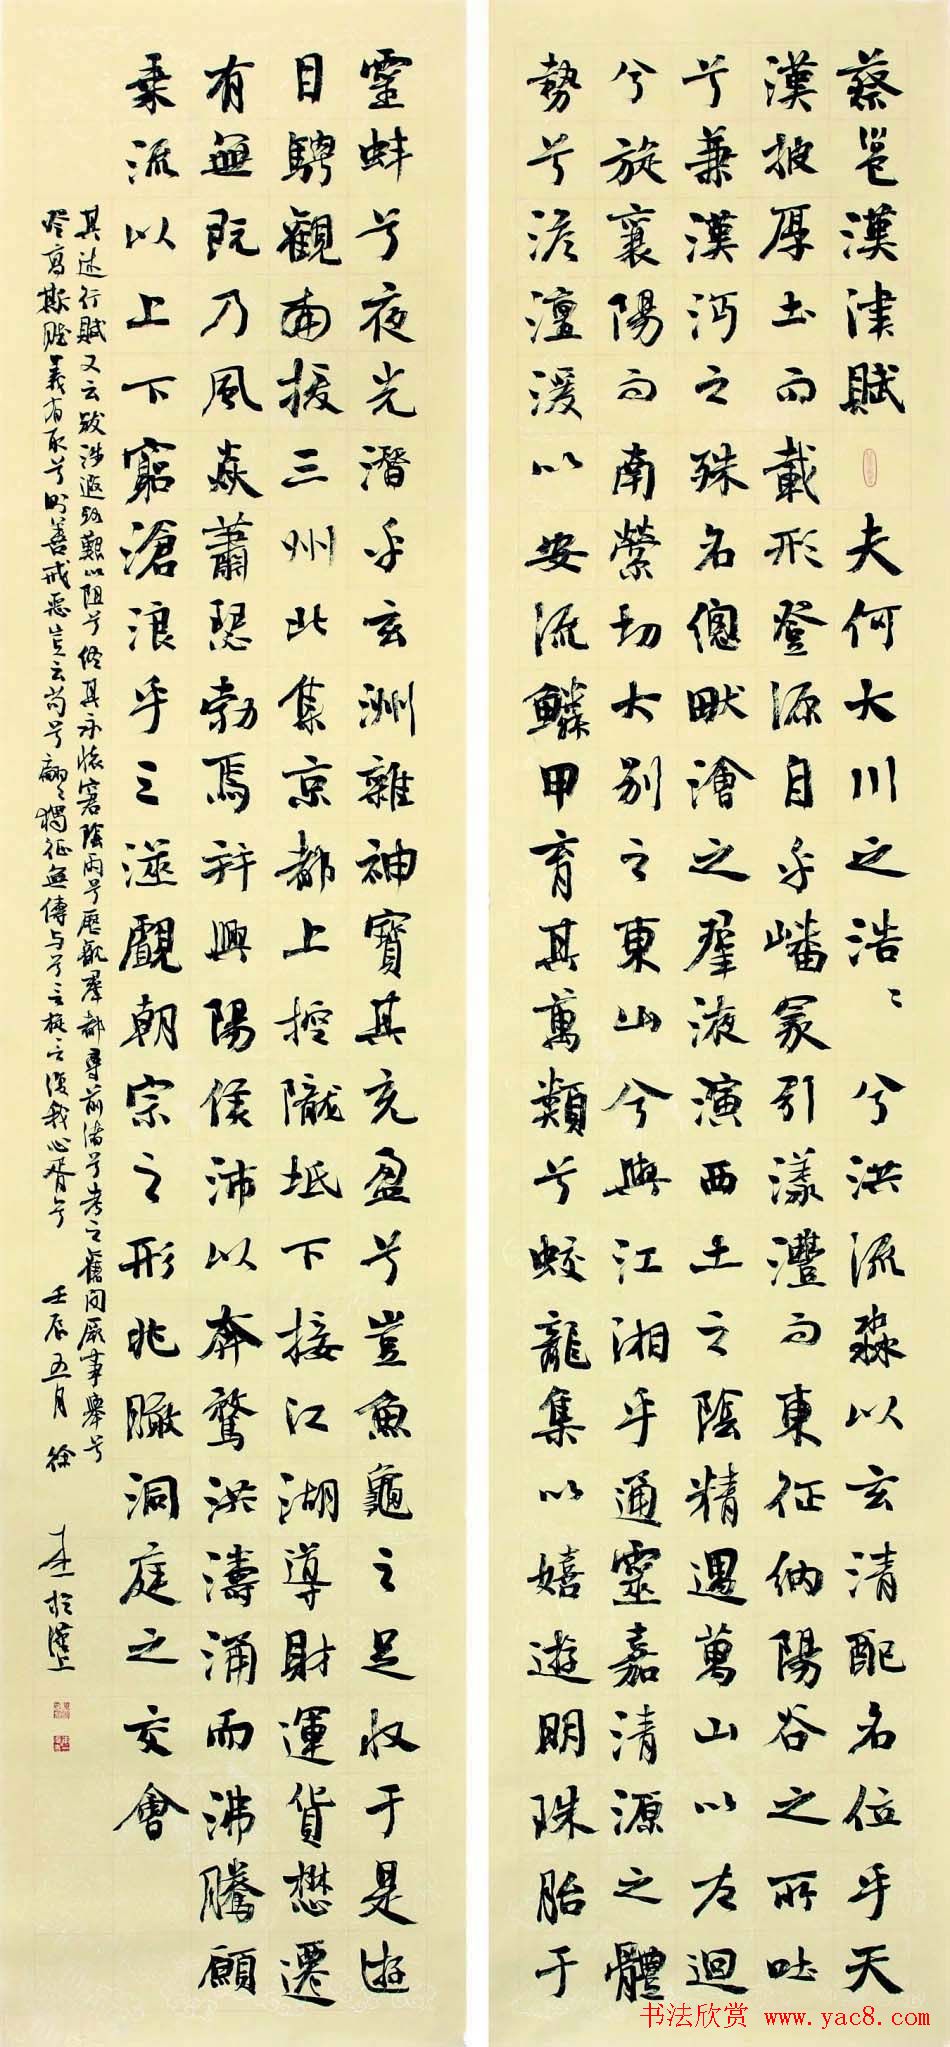 蔡邕漢津賦 夫何大川之浩〻兮洪流淼以玄清配名位乎天
漢披厚土而載形登源自乎嶓冢引漾灃而東征納陽谷之所吐
兮兼漢沔之殊名總畎澮之羣液演西土之陰精遇萬山以左迴
兮旋襄陽而南縈切大別之東山兮與江湘乎通靈嘉清源之體
勢兮澹澶湲以安流鱗甲育其萬類兮蛟龍集以嬉遊明珠胎于
靈蚌兮夜光潛乎玄洲雜神寶其充盈兮豈魚龜之足收于是遊
目騁觀南援三州北集京都上控隴坻下接江湖導財運貨懋遷
有無既乃風焱蕭瑟勃焉并興陽侯沛以奔騖洪濤涌而沸騰願
乘流以上下窮滄浪乎三澨覷朝宗之形兆瞰洞庭之交會
其述行賦又云跋涉遐路艱以阻兮終其永懷窘陰雨兮歷觀羣都尋前緒兮考之舊聞厥事舉兮
登高斯賦義有取兮則善戒惡豈云苟兮翩〻獨征無儔与兮言旋言復我心胥兮 壬辰五月 徐 於漢上
书法欣赏 www.yac8.com